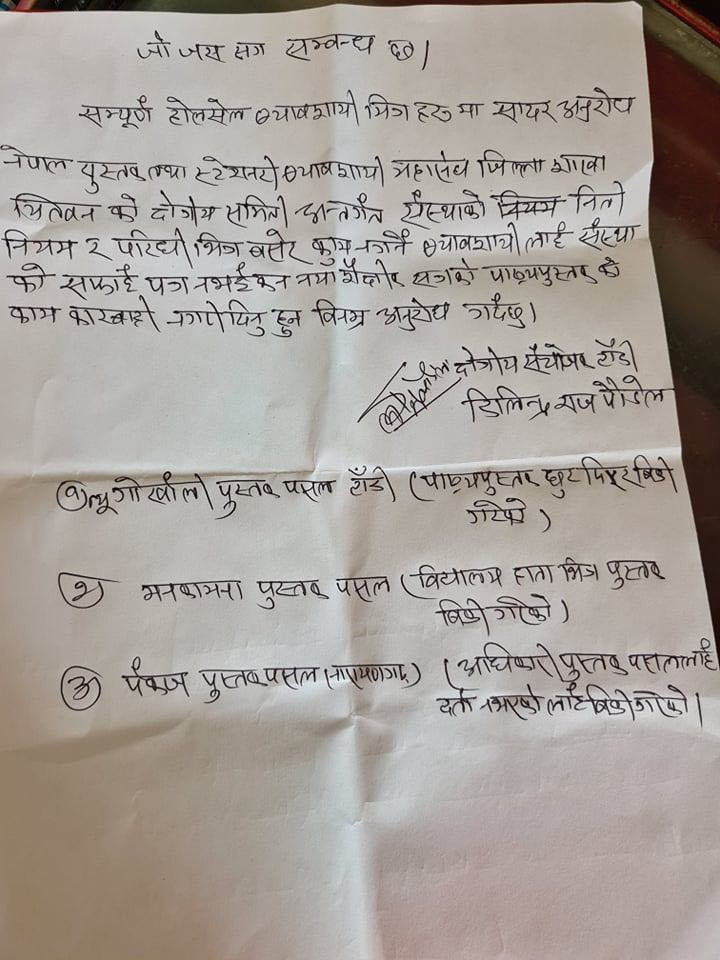 जो जस सग सम्बन्ध छ।
सम्पूर्ण होलसेल व्यावशायी मित्र हरु मा सादर अनुरोध
नेपाल पुस्तक तथा स्टेशनरी व्यावशायी महासंघ जिल्ला शाखा
चितवन को क्षेत्रीय समिती अन्तर्गत संस्थाको नियम निती
नियम र परिधी भित्र बसेर काम नगर्ने व्यावशायी लाई संस्था
को सफाई पत्र नभई कन नया शैक्षीक सत्रको पाठ्यपुस्तक को
काम कारबाही नगरीदिनु हुन विनम्र अनुरोध गर्दछु।
क्षेत्रीय संयोजक टाँडी
डिलिन्द्र राज पौडेल
१ न्यू गोर्खाली पुस्तक पसल टाँडी (पाठ्यपुस्तक छुट दिएर बिक्री
गरेको)
२ मनकामना पुस्तक पसल (विद्यालय हाता भित्र पुस्तक
बिक्री गरेको)
३ पंकज पुस्तक पसल (नारायणगढ) (अधिकारी पुस्तक पसललाई
दर्ता नभएको लाई बिक्री गरेको।